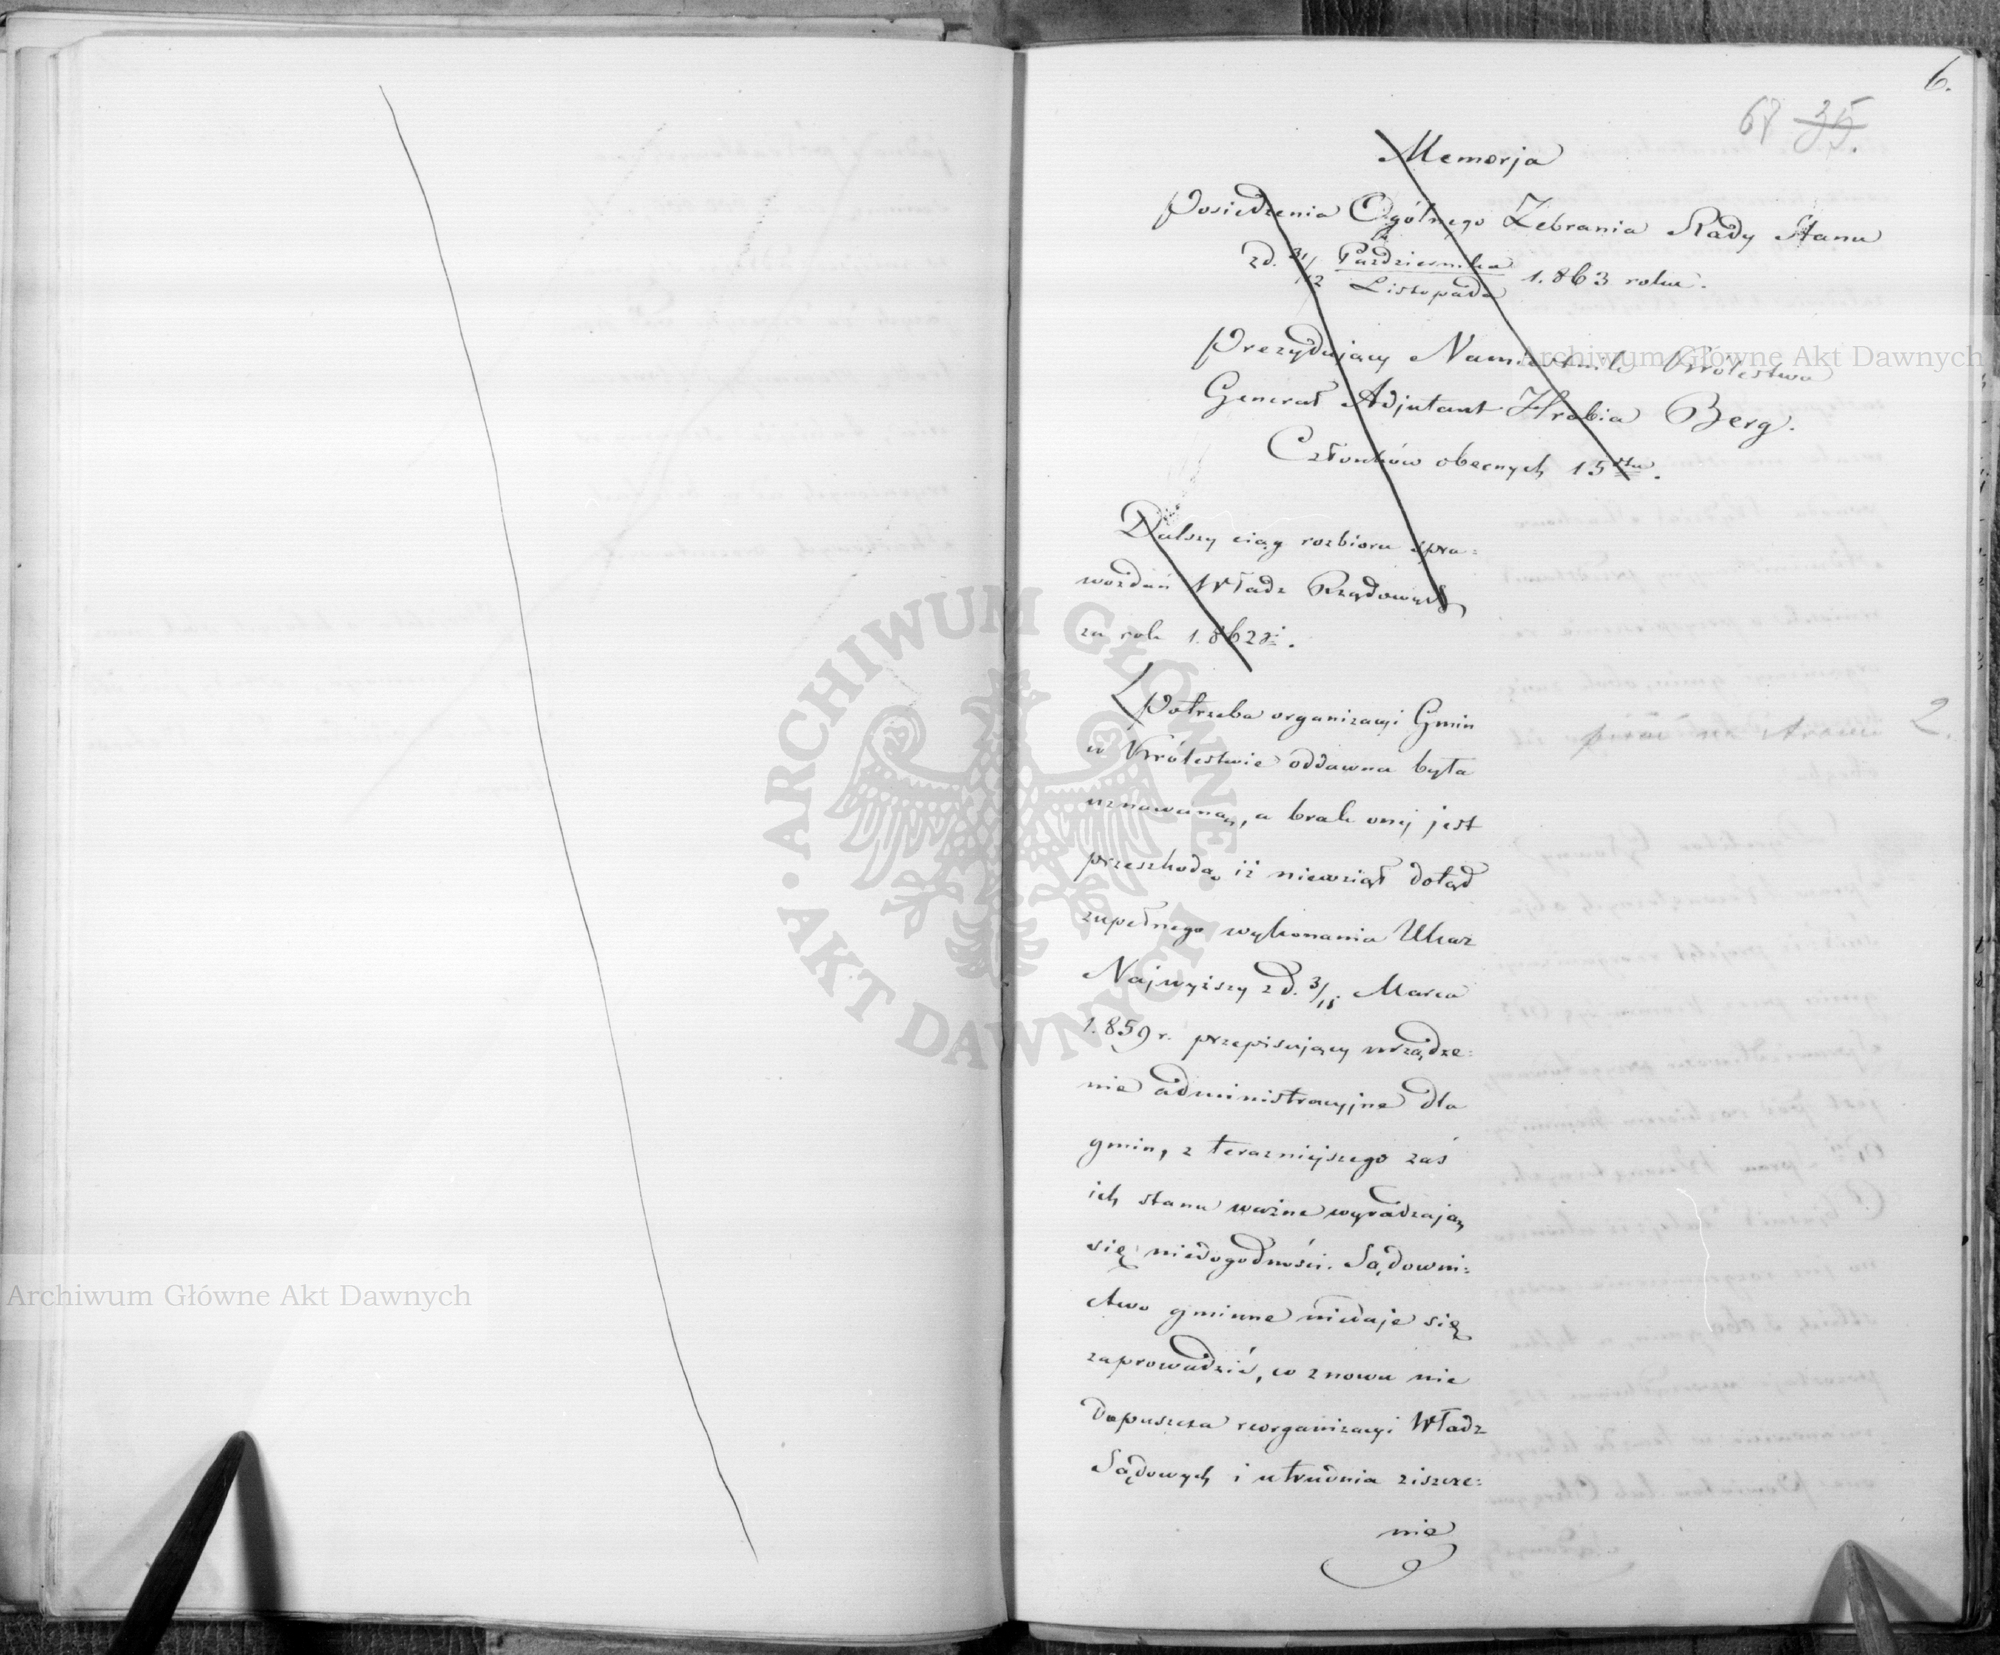 6.
68 35.
Memorja
Posiedzenia Ogólnego Zebrania Rady Stanu
z d. 31/12 Października/Listopada 1.863 roku.
Prezydujący Namiestnik Królestwa
Generał Adjutant Hrabia Berg.
Członków obecnych 15stu.
Dalszy ciąg rozbioru spra=
wozdań Władz Rządowych
za rok 1.862gi.
Potrzeba organizacyi Gmin
w Królestwie oddawna była
uznawaną, a brak onej jest
przeszkodą, iż niewziął dotąd
zupełnego wykonania Ukaz
Najwyższy z d. 3/15. Marca
1.859 r. przepisujący urządze=
nie administracyjne dla
gmin, z teraźniejszego zaś
ich stanu ważne wyradzają
się niedogodności. Sądowni=
ctwo gminne niedaje się
zaprowadzić, co znowu nie
dopuszcza reorganizacyi Władz
Sądowych i utrudnia ziszcze=
nie
2.
Archiwum Główne Akt Dawnych
Archiwum Główne Akt Dawnych
ARCHIWUM GŁÓWNE · AKT DAWNYCH ·